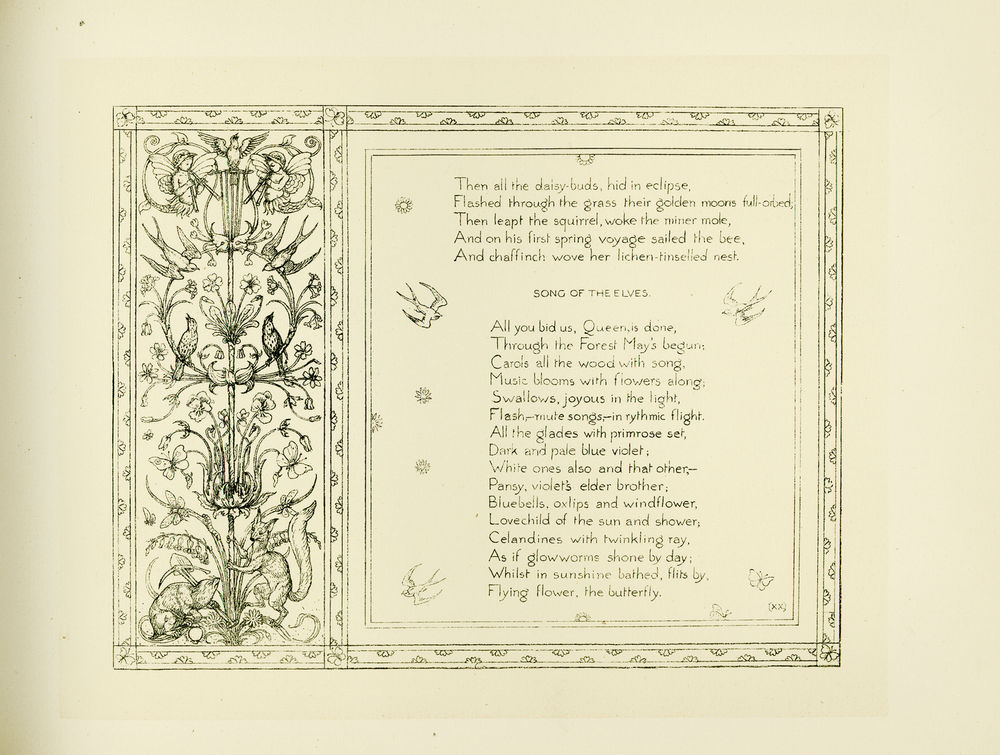 Then all the daisy-buds, hid in eclipse,
Flashed through the grass their golden moons full-orbed;
Then leapt the squirrel, woke the miner mole,
And on his first spring voyage sailed the bee,
And chaffinch wove her lichen-tinselled nest.
SONG OF THE ELVES.
All you bid us, Queen, is done,
Through the Forest May's begun;
Carols all the wood with song,
Music blooms with flowers along;
Swallows, joyous in the light,
Flash,—mute songs,—in rythmic flight.
All the glades with primrose set,
Dark and pale blue violet;
White ones also and that other,—
Pansy, violet's elder brother;
Bluebells, oxlips and windflower,
Lovechild of the sun and shower;
Celandines with twinkling ray,
As if glowworms shone by day;
Whilst in sunshine bathed, flits by,
Flying flower, the butterfly.
(XX)